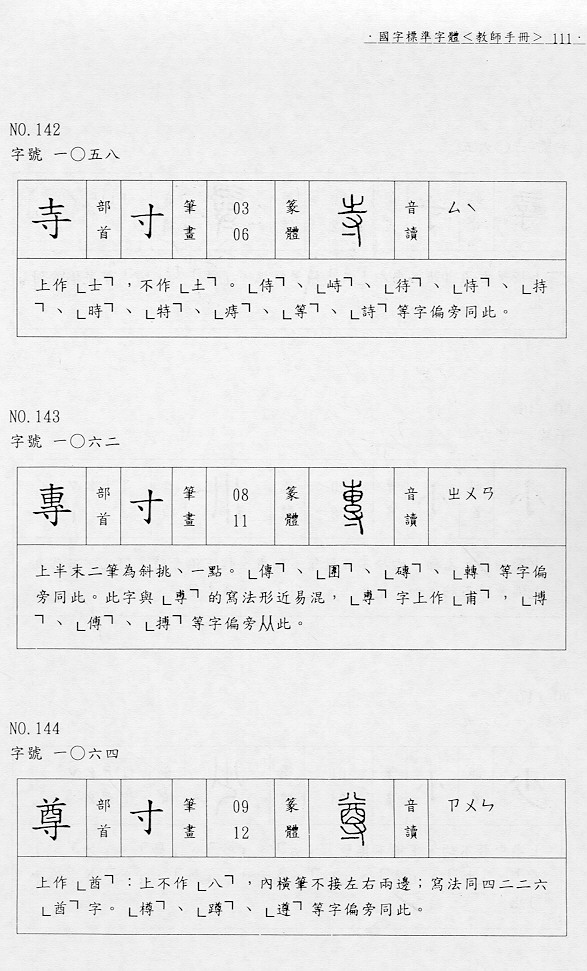 ·國字標準字體＜教師手冊＞ 111·
NO.142
字號 一〇五八
寺 部首 寸 筆畫 03 06 篆體 寺 音讀 ㄙˋ
上作「士」，不作「土」。「侍」、「峙」、「待」、「恃」、「持
」、「時」、「特」、「痔」、「等」、「詩」等字偏旁同此。
NO.143
字號 一〇六二
專 部首 寸 筆畫 08 11 篆體 專 音讀 ㄓㄨㄢ
上半末二筆為斜挑、一點。「傳」、「團」、「磚」、「轉」等字偏
旁同此。此字與「尃」的寫法形近易混，「尃」字上作「甫」，「博
」、「傅」、「搏」等字偏旁从此。
NO.144
字號 一〇六四
尊 部首 寸 筆畫 09 12 篆體 尊 音讀 ㄗㄨㄣ
上作「酋」：上不作「八」，內橫筆不接左右兩邊；寫法同四二二六
「酋」字。「樽」、「蹲」、「遵」等字偏旁同此。